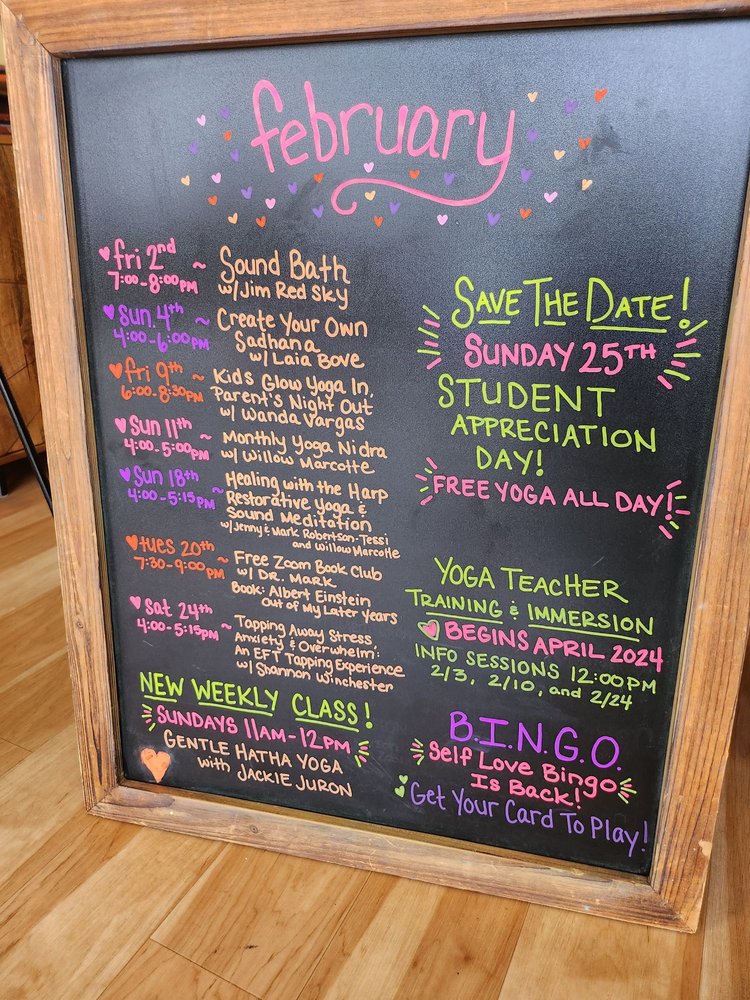 february
fri 2nd ~ Sound Bath
7:00-8:00PM w/Jim Red Sky
Sun. 4th ~ Create Your Own
4:00-6:00PM Sadhana
w/ Laia Bove
fri 9th ~ Kids Glow Yoga In,
6:00-8:30PM Parent's Night Out
w/ Wanda Vargas
Sun 11th ~ Monthly Yoga Nidra
4:00-5:00PM w/ Willow Marcotte
Sun 18th ~ Healing with the Harp
4:00-5:15PM Restorative Yoga &
Sound Meditation
w/ Jenny & Mark Robertson-Tessi
and Willow Marcotte
tues 20th ~ Free Zoom Book Club
7:30-9:00PM w/ DR. Mark
Book: Albert Einstein
Out of My Later Years
Sat 24th ~ Tapping Away Stress,
4:00-5:15PM Anxiety & Overwhelm:
An EFT Tapping Experience
w/ Shannon Winchester
NEW WEEKLY CLASS!
SUNDAYS 11AM-12PM
GENTLE HATHA YOGA
with JACKIE JURON
SAVE THE DATE!
SUNDAY 25TH
STUDENT
APPRECIATION
DAY!
FREE YOGA ALL DAY!
YOGA TEACHER
TRAINING & IMMERSION
BEGINS APRIL 2024
INFO SESSIONS 12:00PM
2/3, 2/10, and 2/24
B.I.N.G.O.
Self Love Bingo
Is Back!
Get Your Card To Play!